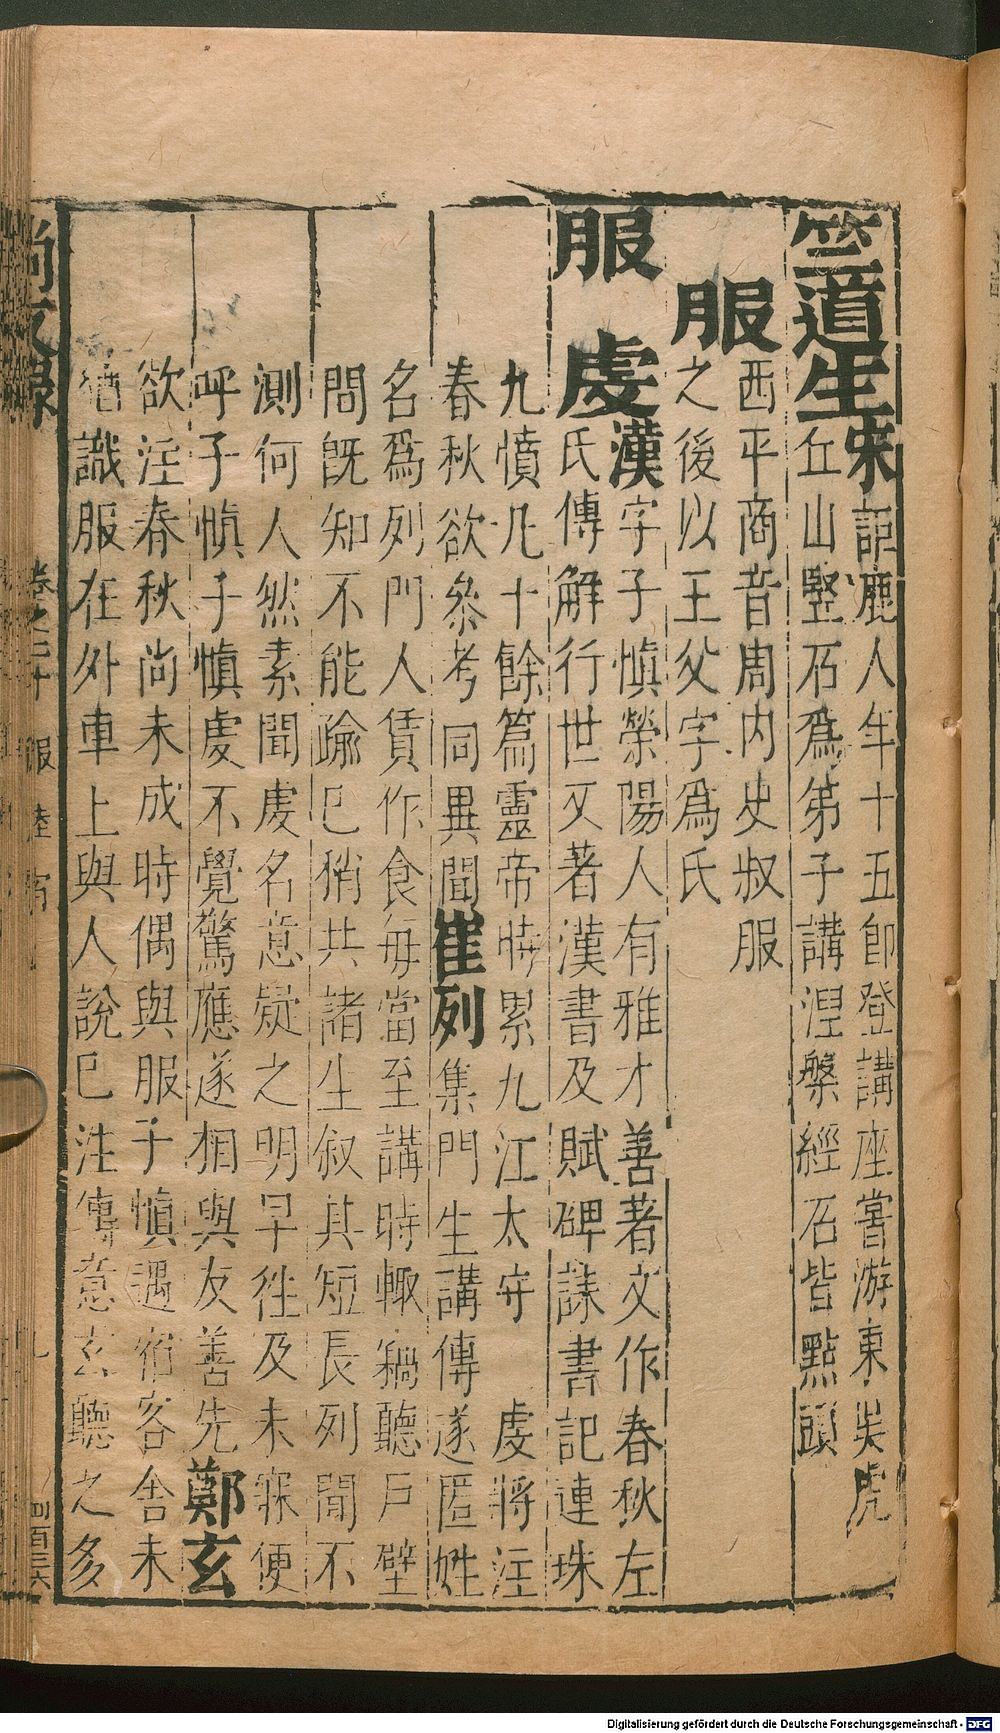 竺道生宋詎鹿人年十五卽登講座嘗游東吴虎
丘山竪石爲第子講涅槃經石皆點頭
服
西平商音周内史叔服
之後以王父字爲氏
服虔漢字子慎滎陽人有雅才善著文作春秋左
氏傳解行世又著漢書及賦碑誄書記連珠
九憤凡十餘篇靈帝時累九江太守 虔將注
春秋欲叅考同異聞崔列集門生講傳遂匿姓
名爲列門人賃作食毎當至講時輙竊聽戶壁
問旣知不能踰巳稍共諸生叙其短長列聞不
測何人然素聞虔名意疑之明早徃及未寐便
呼子愼子慎虔不覺驚應遂相與友善先鄭玄
欲注春秋尚未成時偶與服子慎遇宿客舍未
相識服在外車上與人說巳注傳意玄聽之多
尚友錄 卷之二十 服 陸 宿 九 四百三六
Digitalisierung gefördert durch die Deutsche Forschungsgemeinschaft - DFG